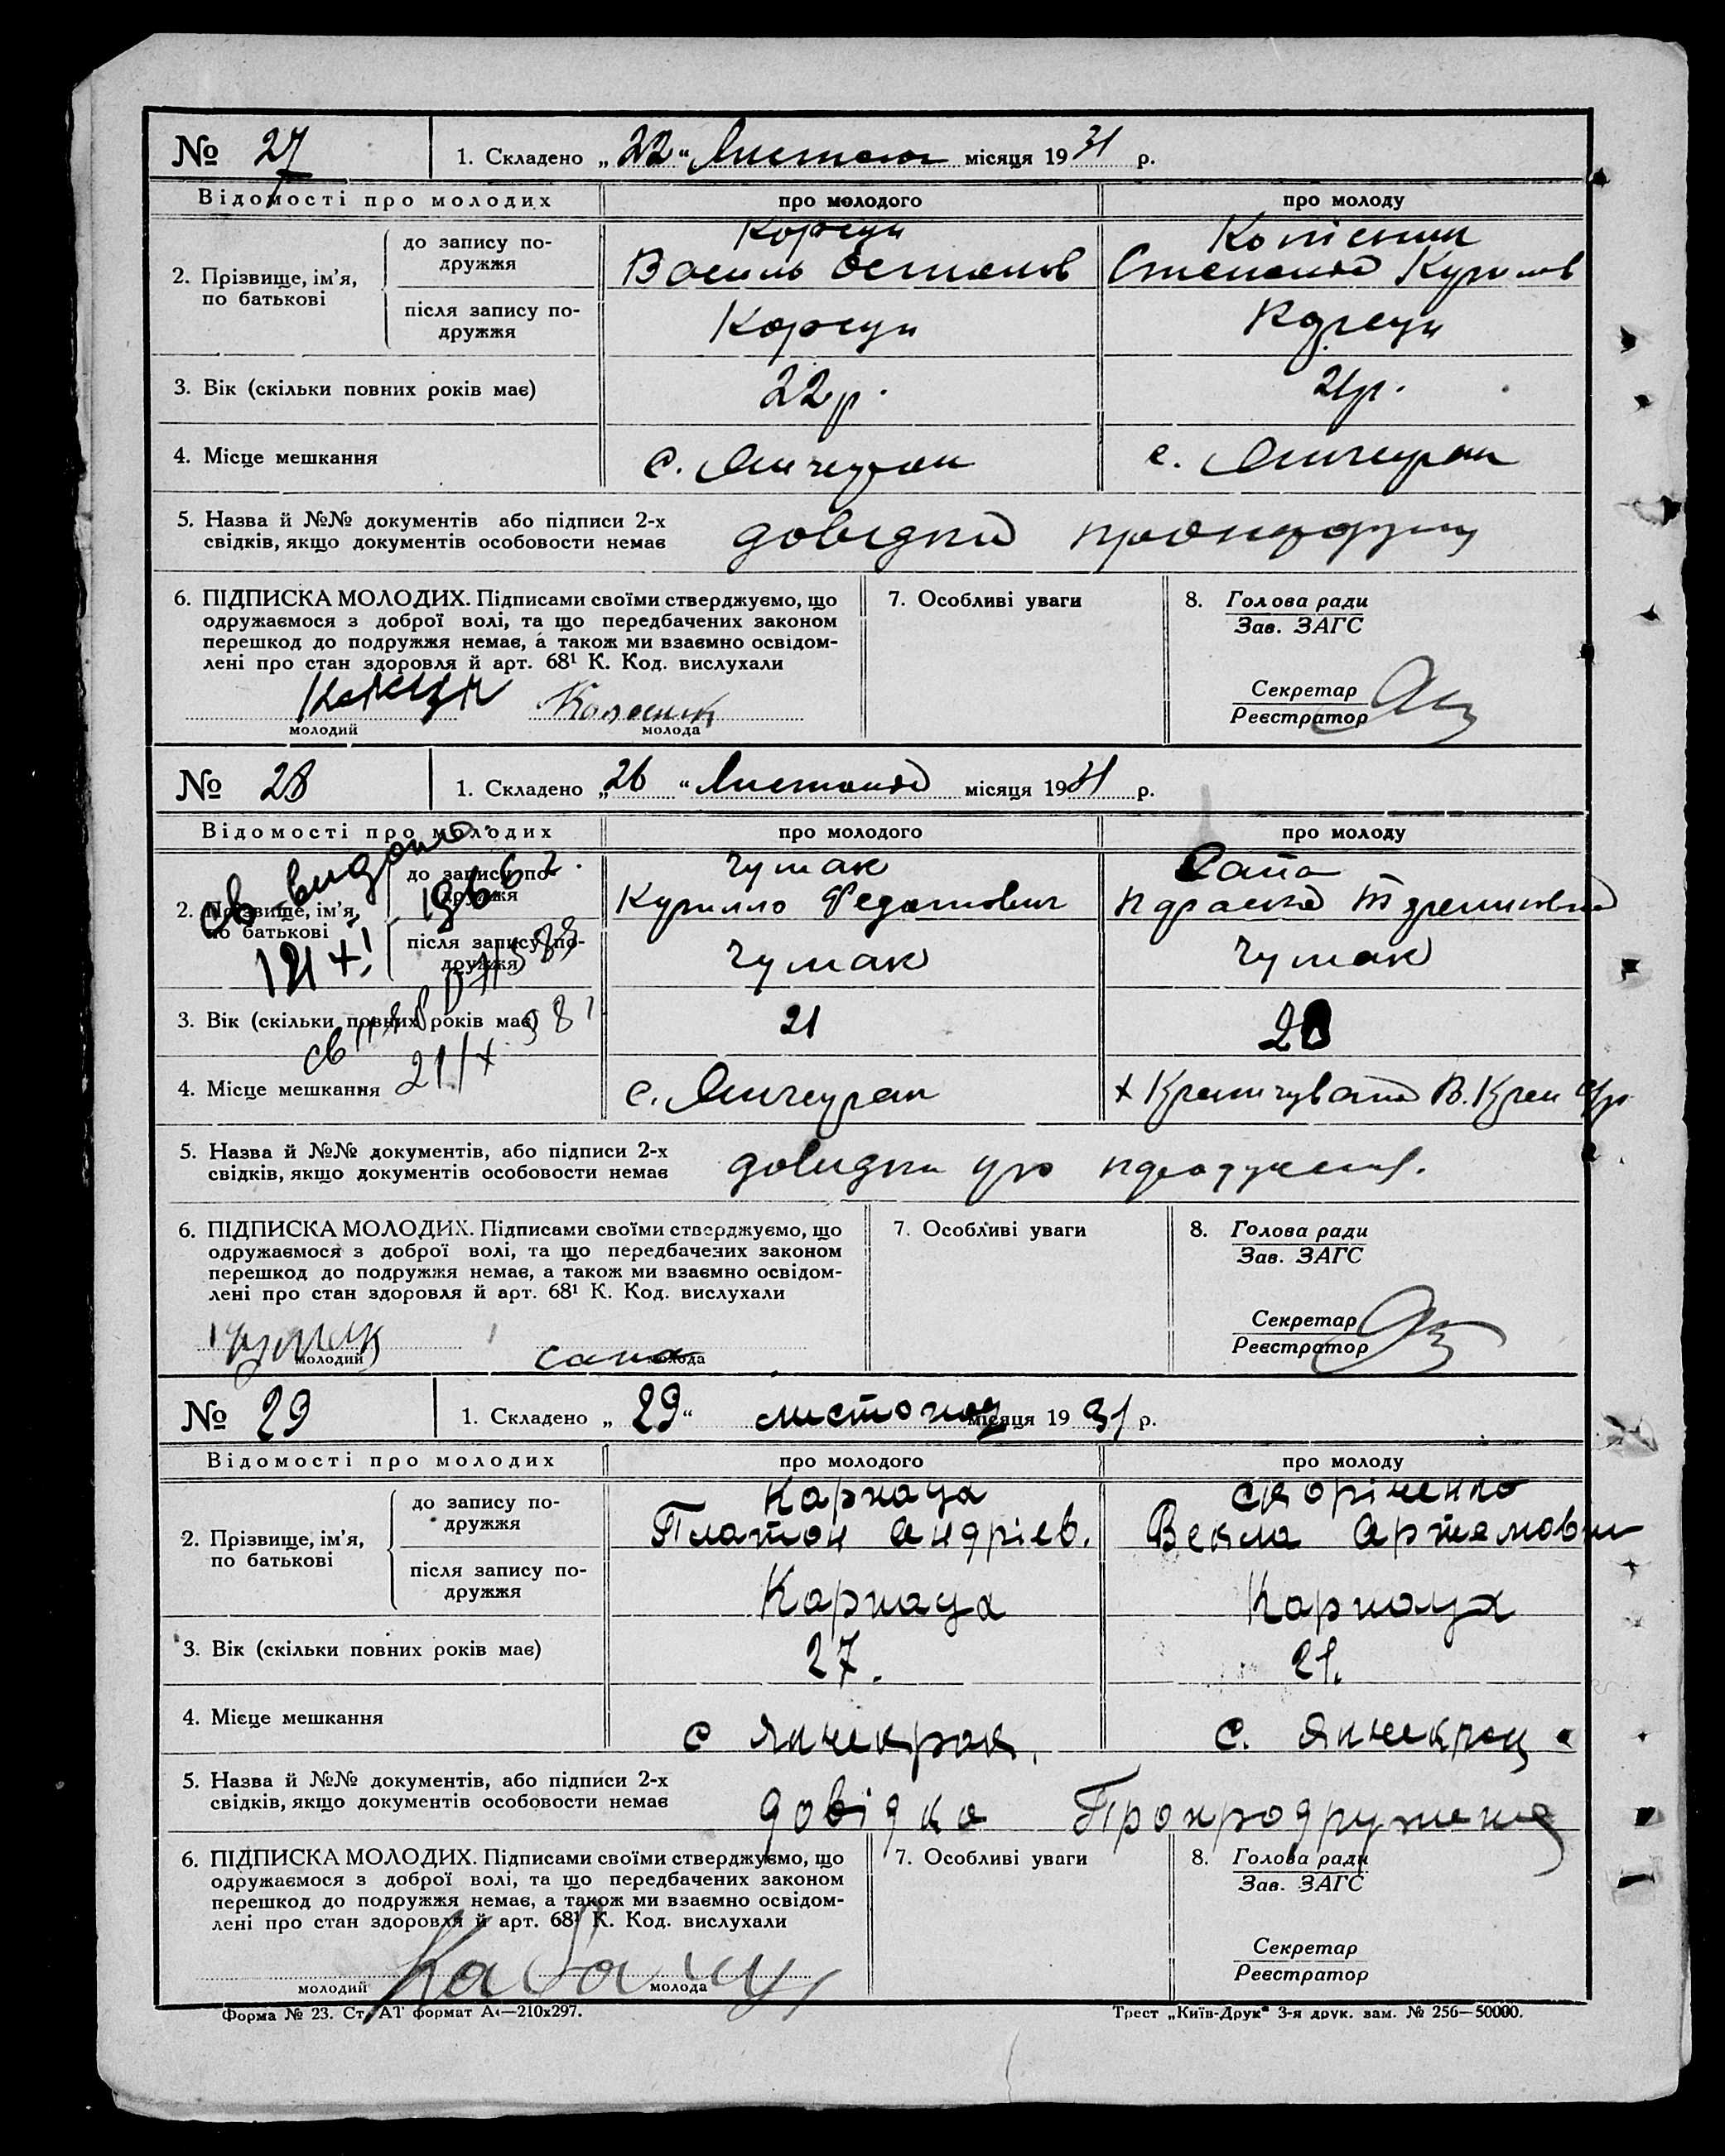 № 27 1. Складено „22“ Листопа місяця 1931 р.
Відомості про молодих про молодого про молоду
2. Прізвище, ім’я, по батькові
до запису подружжя Корсун
Василь Остапов
після запису подружжя Корсун Корсун
3. Вік (скільки повних років має) 22 р. 21 р.
4. Місце мешкання с. с.
5. Назва й №№ документів або підписи 2-х
свідків, якщо документів особовости немає довідки
6. ПІДПИСКА МОЛОДИХ. Підписами своїми стверджуємо, що
одружаємося з доброї волі, та що передбачених законом
перешкод до подружжя немає, а також ми взаємно освідом-
лені про стан здоровля й арт. 68¹ К. Код. вислухали
молодий Колесник молода
7. Особливі уваги
8. Голова ради
Зав. ЗАГС
Секретар
Реєстратор
№ 28 1. Складено „26“ Листопад місяця 1931 р.
Відомості про молодих про молодого про молоду
св. видано
2. Прізвище, ім’я, по батькові
до запису подружжя Чумак Сапа
Курилло Федотович
після запису подружжя Чумак Чумак
3. Вік (скільки повних років має) 21 20
4. Місце мешкання с.
5. Назва й №№ документів, або підписи 2-х
свідків, якщо документів особовости немає довидки про
6. ПІДПИСКА МОЛОДИХ. Підписами своїми стверджуємо, що
одружаємося з доброї волі, та що передбачених законом
перешкод до подружжя немає, а також ми взаємно освідом-
лені про стан здоровля й арт. 68¹ К. Код. вислухали
Чумак молодий сапа молода
7. Особливі уваги
8. Голова ради
Зав. ЗАГС
Секретар
Реєстратор
№ 29 1. Складено „29“ листопад місяця 1931 р.
Відомості про молодих про молодого про молоду
2. Прізвище, ім’я, по батькові
до запису подружжя Карнаух скоріченко
Платон Андріев. Векла Артямовн
після запису подружжя Карнаух Карнаух
3. Вік (скільки повних років має) 27. 21.
4. Місце мешкання с Янчекрак. с. Янчекрец
5. Назва й №№ документів, або підписи 2-х
свідків, якщо документів особовости немає довідка
6. ПІДПИСКА МОЛОДИХ. Підписами своїми стверджуємо, що
одружаємося з доброї волі, та що передбачених законом
перешкод до подружжя немає, а також ми взаємно освідом-
лені про стан здоровля й арт. 68¹ К. Код. вислухали
молодий молода
7. Особливі уваги
8. Голова ради
Зав. ЗАГС
Секретар
Реєстратор
Форма № 23. Ст. АТ формат А4—210х297. Трест „Київ-Друк“ 3-я друк. зам. № 256—50000.